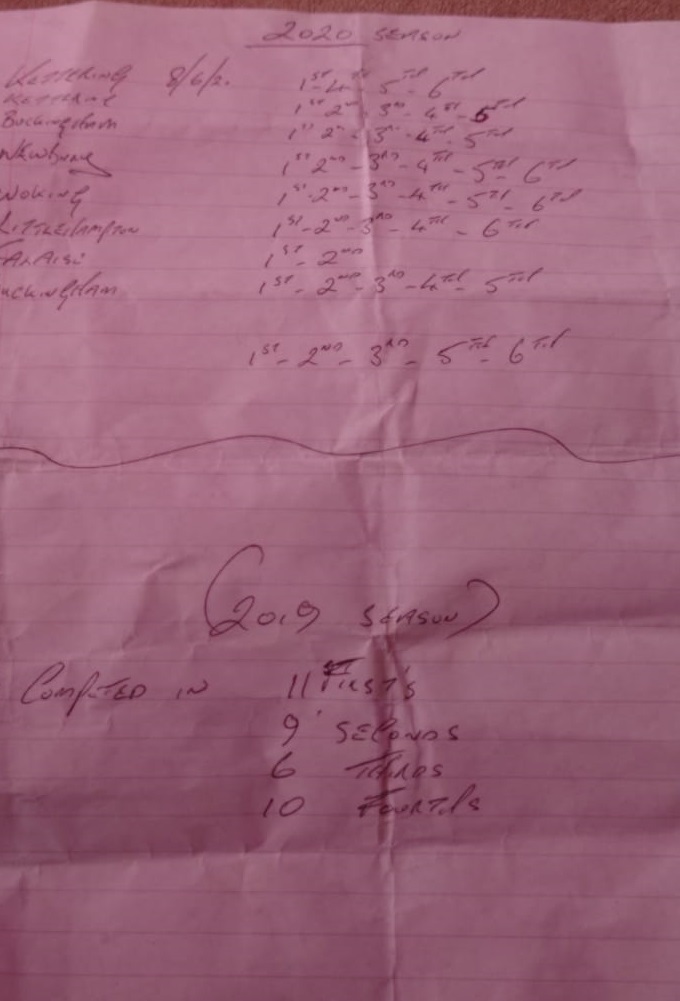 2020 SEASON
KETTERING 8/6/2. 1ST - 4TH 5TH - 6TH
1ST 2ND - 3RD - 4TH - 5TH
Buckingham 1ST 2ND - 3RD - 4TH - 5TH
1ST 2ND - 3RD - 4TH - 5TH - 6TH
WOKING 1ST - 2ND - 3RD - 4TH - 5TH - 6TH
LITTLEHAMPTON 1ST - 2ND - 3RD - 4TH - 6TH
1ST - 2ND
UCKINGHAM 1ST - 2ND - 3RD - 4TH - 5TH
1ST - 2ND - 3RD - 5TH - 6TH
(2019 SEASON)
COMPETED IN 11 FIRST'S
9 SECONDS
6 THIRDS
10 FOURTHS